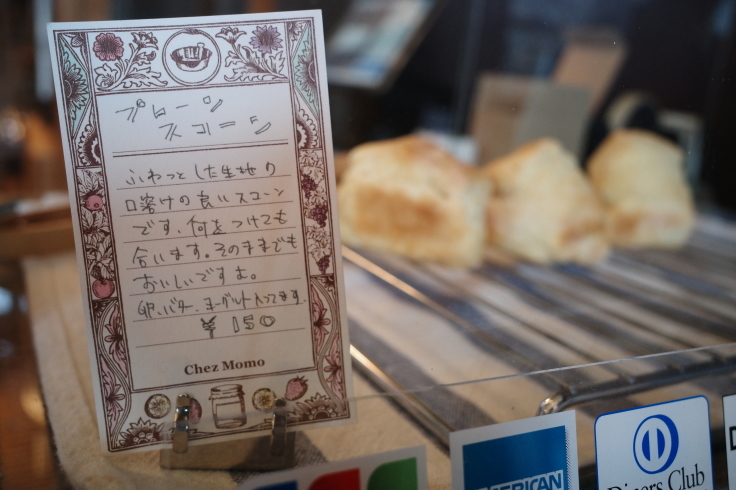 プレーン
スコーン
ふわっとした生地の
口溶けの良いスコーン
です、何をつけても
合います。そのままでも
おいしいですよ。
卵、バター、ヨーグルト入ってます。
¥150
Chez Momo
AMERICAN
Diners Club